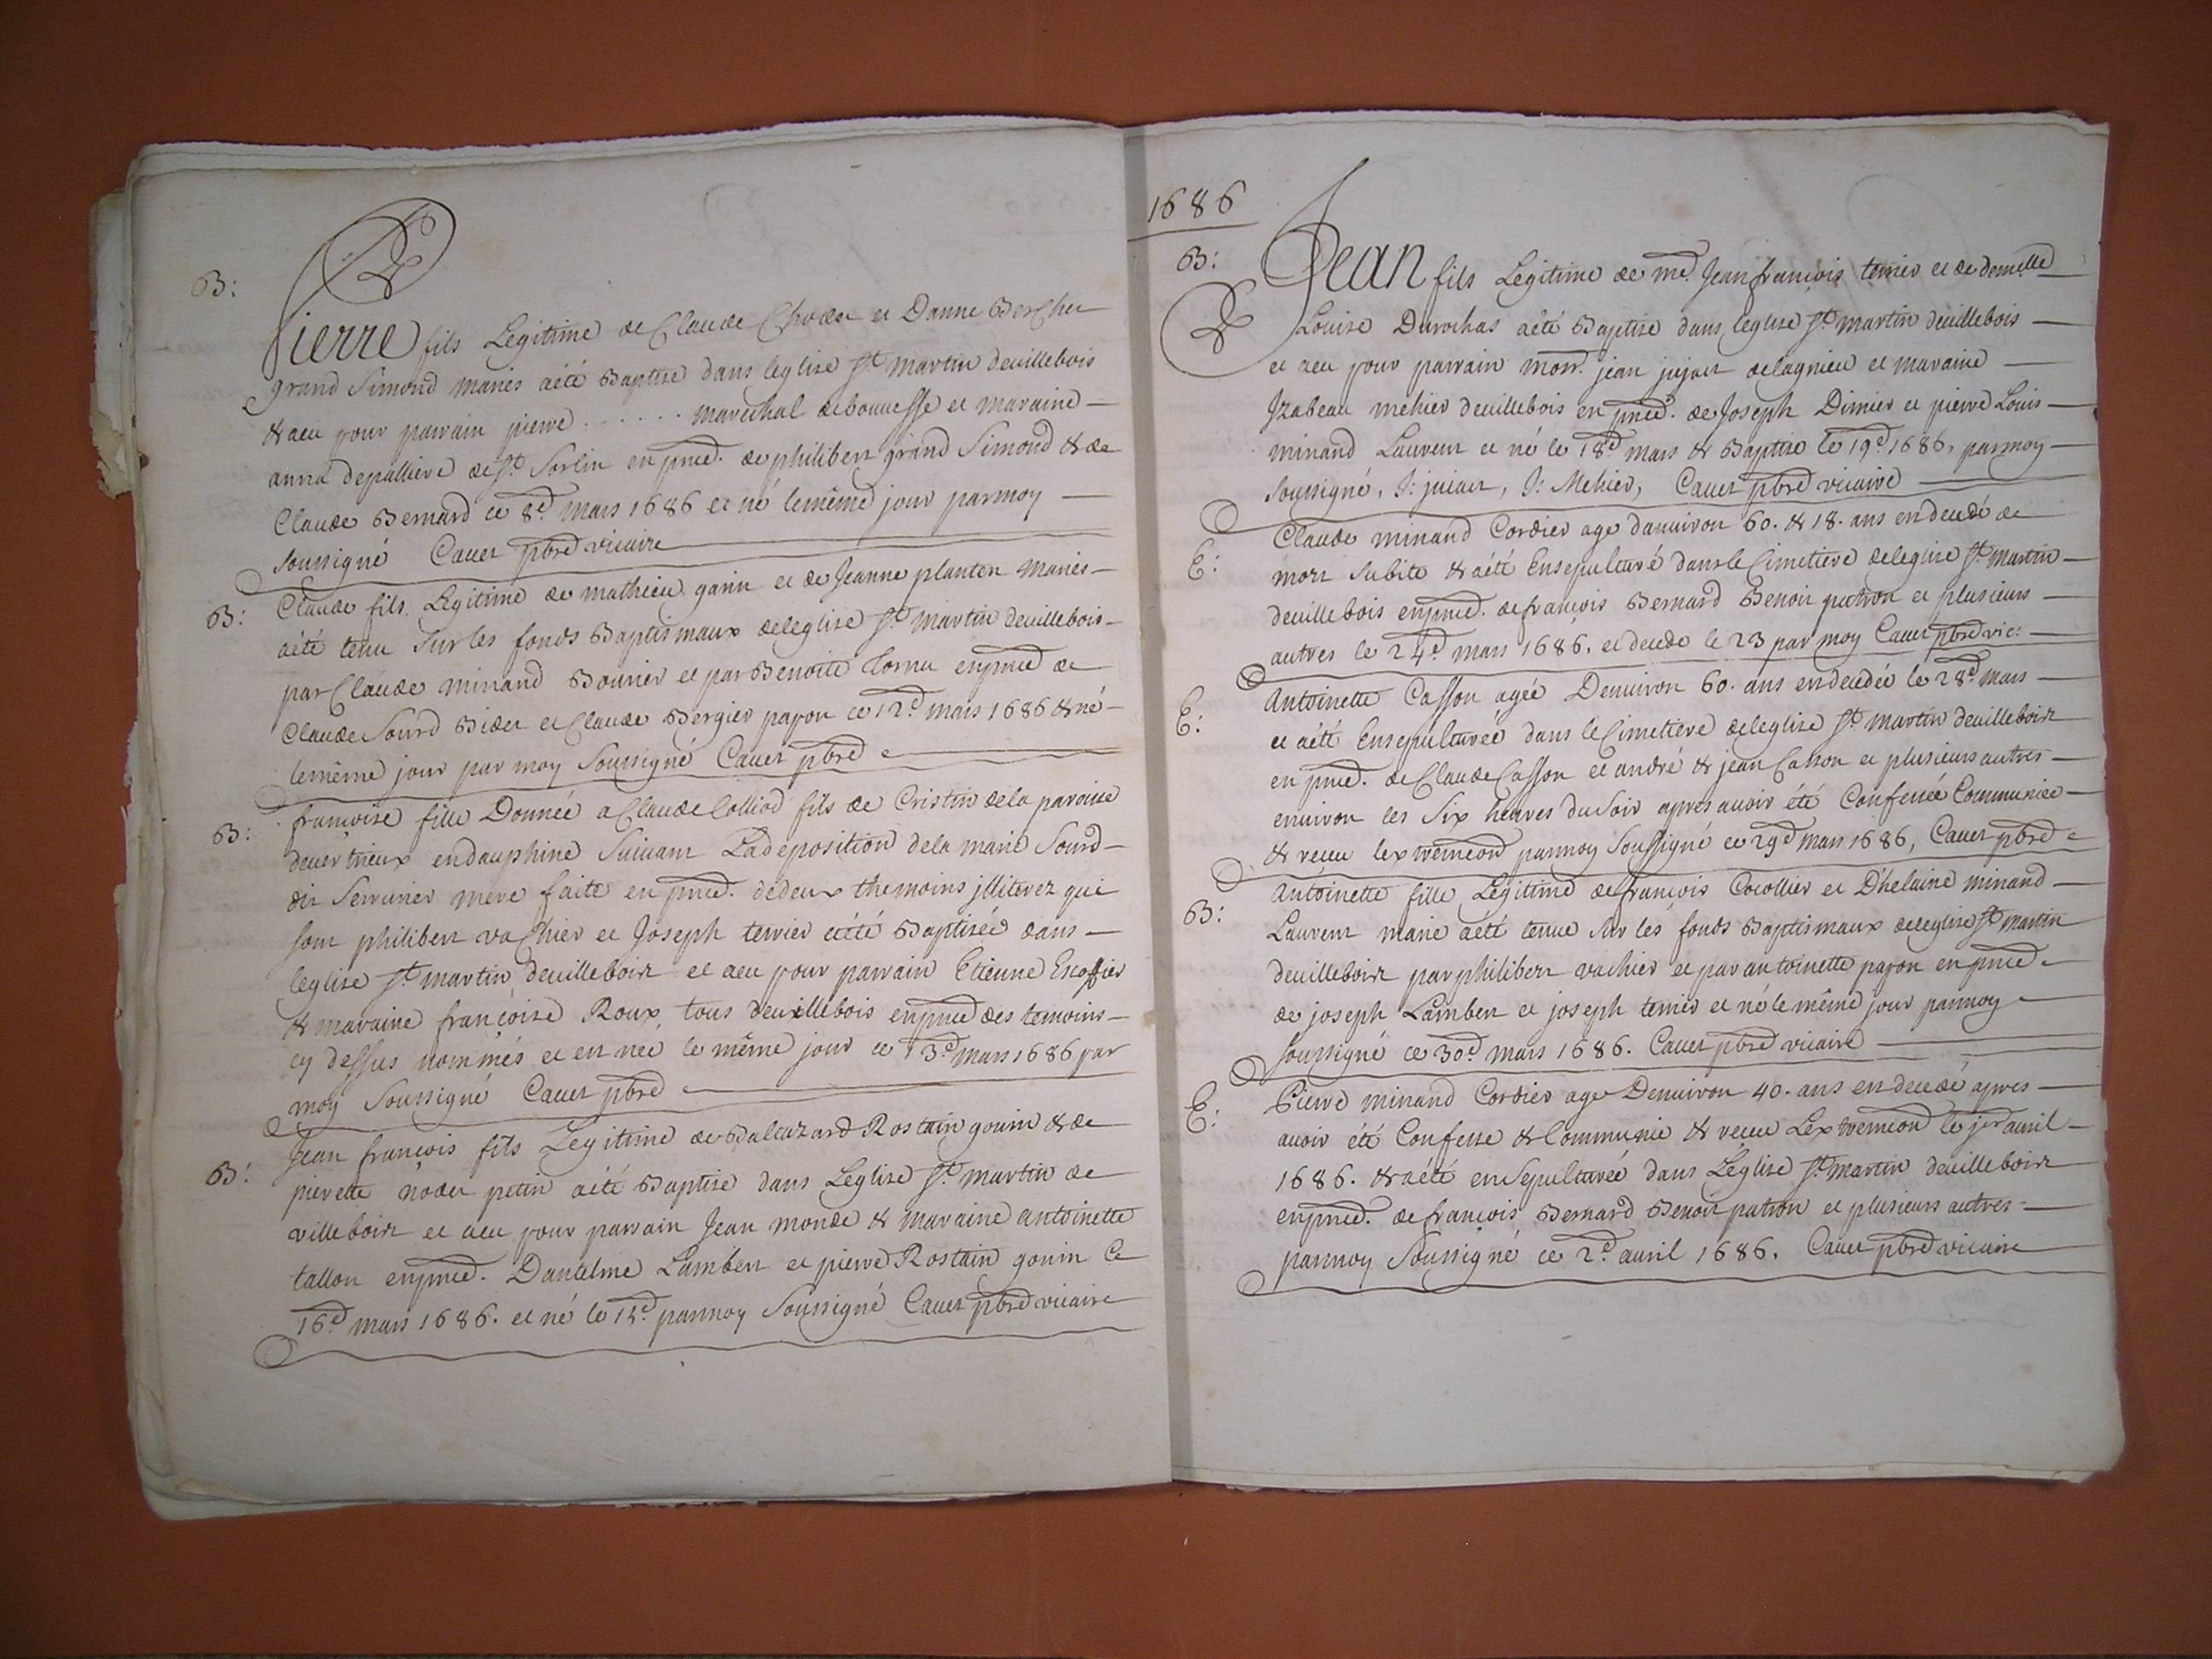 B:
Pierre fils Legitime de Claude et Danne Bercher
grand Simond mariés aété Baptise dans leglise St. martin deuillebois
& aeu pour parrain pierre . . . . . . marechal debouuesse et maraine —
anna depalliere de St. Sorlin en pnce. de philibert grand Simond & de
Claude Bernard ce 8e. mars 1686 et né lemême jour parmoy —
soussigné Cauet pbre vicaire
B: Claude fils Legitime de mathieu garin et de Jeanne planten mariés —
aété tenu sur les fonds Baptismaux deleglise St. martin deuillebois —
par Claude minand Bouuier et par Benoite Cornu enpnce de
Claude Sourd Bidet et Claude Bergier papon ce 12e. mars 1686 & né —
lemême jour par moy Soussigné Cauet pbre
B: françoise fille Donnée a Claude Colliod fils de Cristin dela paroisse
deuertrieux endauphiné Suiuant La déposition dela marie Sourd —
dit Serrurier mere faite en pnce. dedeux themoins jlliterez qui
sont philibert vachier et Joseph terrier aété Baptisée dans —
leglise St. martin deuilleboix et aeu pour parrain Etienne Escoffier
& maraine françoise Roux tous deuillebois enpnce des temoins —
cy dessus nommés et est née le même jour ce 13e. mars 1686 par
moy Soussigné Cauet pbre
B: Jean françois fils Legitime de Baltazard Rostain gouin & de
pierette nodet petin aété Baptise dans Leglise St. martin de
villeboix et aeu pour parrain Jean monde & maraine antoinette
tallon enpnce. Dantelme Lambert et pierre Rostain gonin Ce
16e. mars 1686. et né le 15e. parmoy Soussigné Cauet pbre vicaire
1686
B: Jean fils Legitime de me. Jean françois terrier et de demelle
Louise Durochas aété Baptise dans leglise St. martin deuillebois —
et aeu pour parrain monr. jean jujat delagnieu et maraine —
Jzabeau mehier deuillebois en pnce. de Joseph Dimier et pierre Louis —
minand Laurent et né le 18e mars & Baptise le 19e. 1686, parmoy —
soussigné, J: jujat, J: Mehier, Cauet pbre vicaire —
E: Claude minand Cordier age danuiron 60. & 18. ans endecedé de
mort subite & aété Ensepulturé dans le Cimetiere deleglise St. martin —
deuillebois enpnce. defrançois Bernard Benoit patron et plusieurs —
autres le 24e mars 1686. et decede le 23 par moy Cauet pbre vic: —
E: Antoinette Casson agée Denuiron 60. ans endecedée le 28e. mars —
et aété Ensepulturée dans le Cimetiere deleglise St. martin deuilleboix
en pnce. de Claude Casson et andré & jean Casson et plusieurs autres —
enuiron les Six heures du Soir apres auoir été Confessée Communiée —
& receu lextremeond parmoy Soussigné ce 29e mars 1686, Cauet pbre
B: Antoinette fille Legitime defrançois Cocollier et D'helaine minand —
Laurent marié aété tenue sur les fonds Baptismaux deleglise St. martin
deuilleboix par philibert vachier et par antoinette papon en pnce
de joseph Lambert et joseph terrier et né le même jour parmoy
soussigné ce 30e. mars 1686. Cauet pbre vicaire —
E: Pierre minand Cordier age Denuiron 40. ans en decedé apres —
auoir été Confesse & Communié & receu Lextremeond le jer auril —
1686. & aété enSepulturée dans Léglise St. martin deuilleboix
enpnce. de françois Bernard Benoit patron et plusieurs autres —
parmoy Soussigné ce 2e. auril 1686. Cauet pbre vicaire